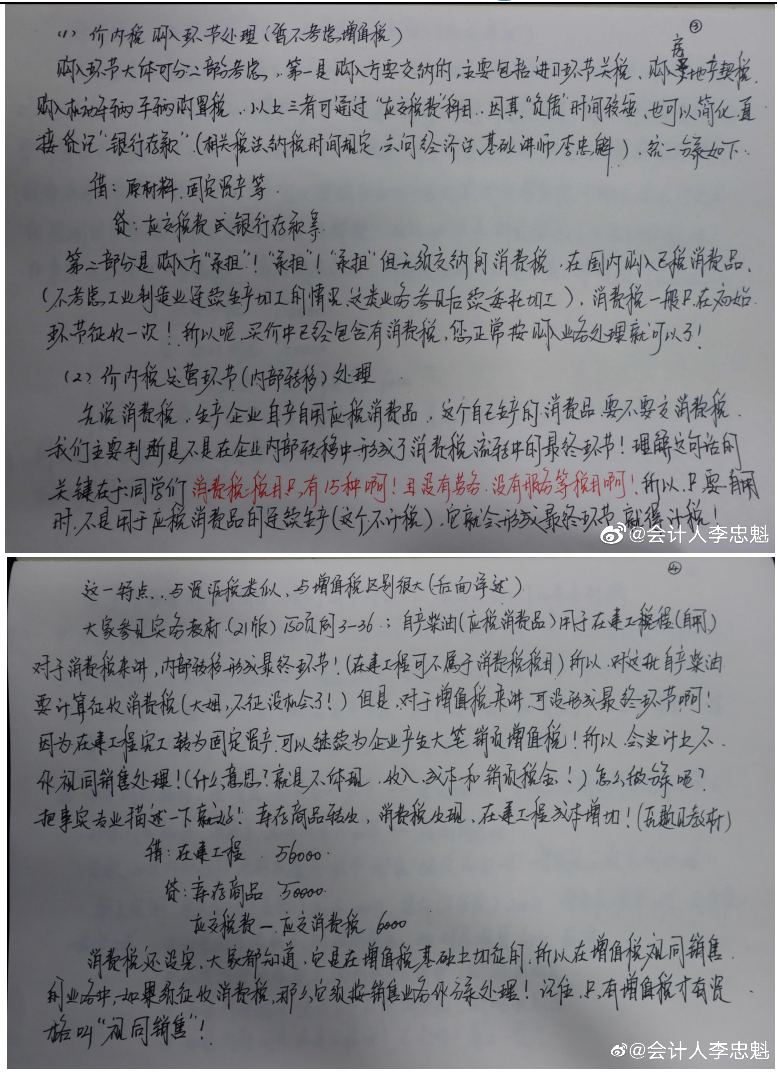 ③
(1) 价内税购入环节处理(暂不考虑增值税)
购入环节大体可分二部分考虑。第一是购入方要交纳的,主要包括进口环节关税、购入房地产契税、
购入机动车辆车辆购置税。以上三者可通过“应交税费”科目,因其“负债”时间较短,也可以简化,直
接贷记“银行存款”(相关税法纳税时间规定,六问经济法基础讲师李忠魁)。统一分录如下:
借:原材料、固定资产等
贷:应交税费或银行存款等
第二部分是购入方“承担”!“承担”!“承担”但无须交纳的消费税。在国内购入已税消费品,
(不考虑工业制造业连续生产加工的情况,这类业务参见后续委托加工),消费税一般只在初始
环节征收一次!所以呢,买价中已经包含有消费税,您正常按购入业务处理就可以了!
(2) 价内税运营环节(内部转移)处理
先说消费税,生产企业自产自用应税消费品,这个自己生产的消费品要不要交消费税,
我们主要判断是不是在企业内部转移中形成了消费税流转中的最终环节!理解这句话的
关键在于同学们消费税税目只有15种啊!且没有劳务、没有服务等税目啊!所以只要自用
时,不是用于应税消费品的连续生产(这个不计税),它就会形成最终环节,就得计税!
@会计人李忠魁
④
这一特点,与资源税类似,与增值税区别很大(后面详述)
大家参见实务教材(21版)150页例3-36:自产柴油(应税消费品)用于在建工程(自用)
对于消费税来讲,内部转移形成最终环节!(在建工程可不属于消费税税目)所以,对这批自产柴油
要计算征收消费税(大姐,不征没机会了!)但是,对于增值税来讲,可没形成最终环节啊!
因为在建工程完工转为固定资产,可以继续为企业产生大笔销项增值税!所以,会计上不
作视同销售处理!(什么意思?就是不体现,收入、成本和销项税金!)怎么做分录呢?
把事实专业描述一下就好!库存商品转出,消费税出现,在建工程成本增加!(原题见教材)
借:在建工程 56000
贷:库存商品 50000
应交税费—应交消费税 6000
消费税还没完,大家都知道,它是在增值税基础上加征的,所以在增值税视同销售
的业务中,如果须征收消费税,那么它须按销售业务作分录处理!记住,只有增值税才有资
格叫“视同销售”!
@会计人李忠魁